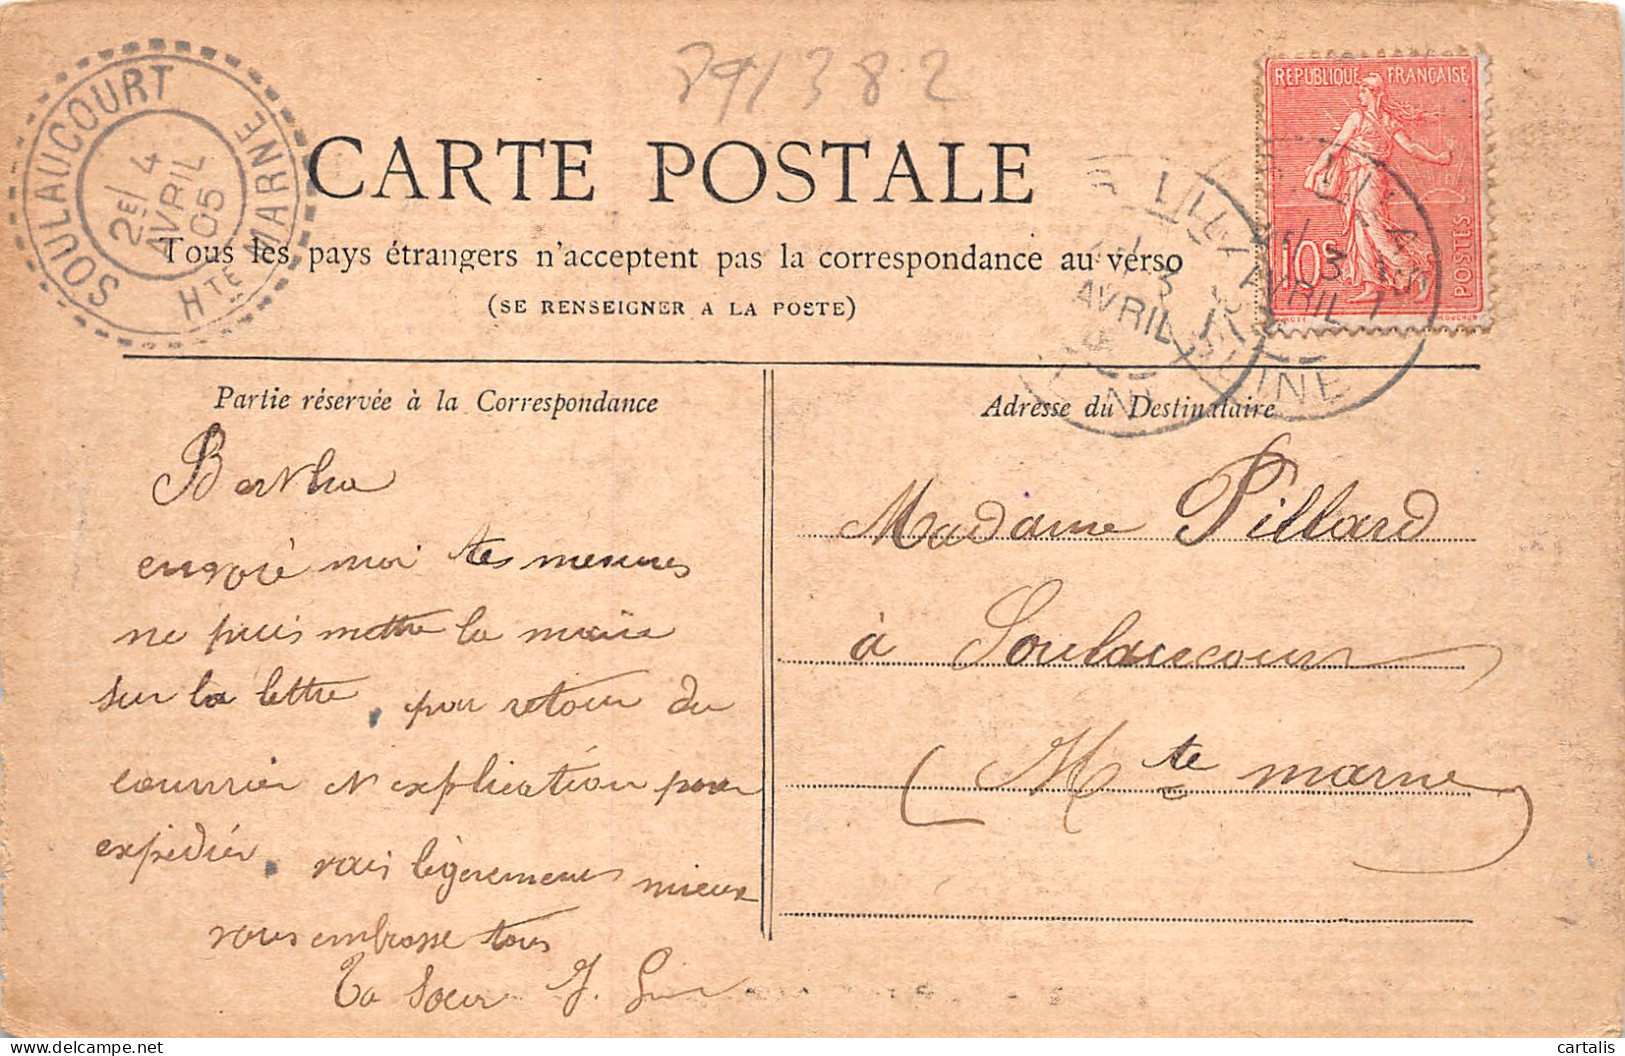 391382
SOULAUCOURT
Hte MARNE
2E/ 4
AVRIL
05
CARTE POSTALE
REPUBLIQUE FRANÇAISE
10c
POSTES
LES LILAS
3
AVRIL
SEINE
Tous les pays étrangers n'acceptent pas la correspondance au verso
(SE RENSEIGNER A LA POSTE)
Partie réservée à la Correspondance
Bertha
envoie moi tes mesures
ne puis mettre la main
sur la lettre, par retour du
courrier et explication pour
expédier. vais légèrement mieux
vous embrasse tous
Ta sœur J.
Adresse du Destinataire
Madame Pillard
à Soulaucourt
(Hte marne)
cartalis